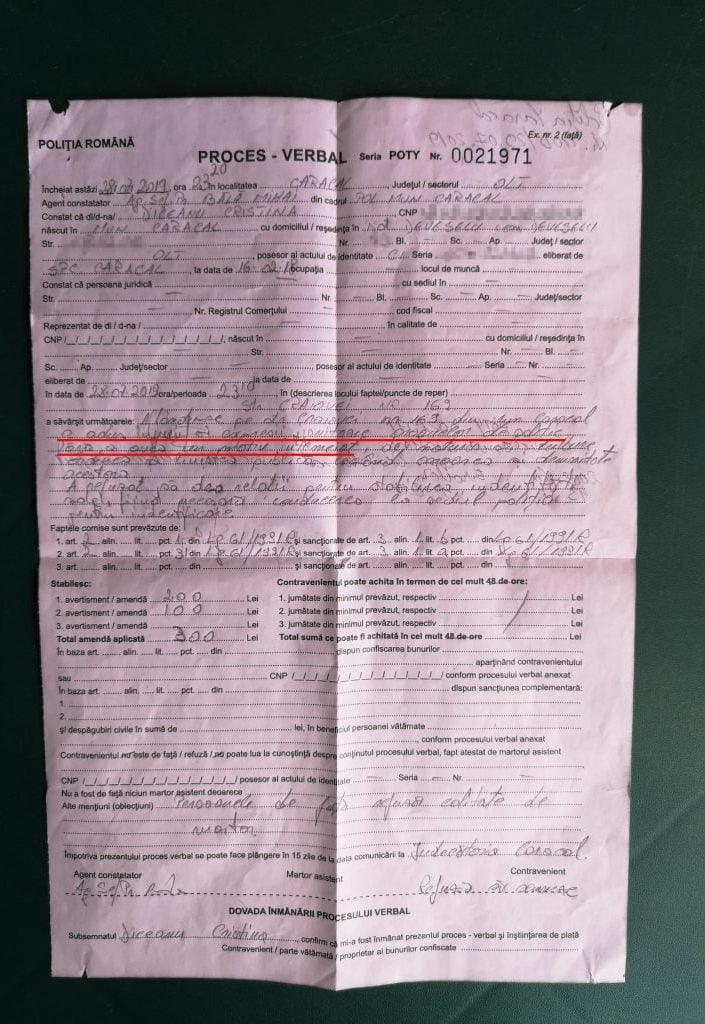 POLIȚIA ROMÂNĂ
Ex. nr. 2 (față)
PROCES - VERBAL Seria POTY Nr. 0021971
Încheiat astăzi 28.07.2019, ora 23 20 în localitatea CARACAL, Județul / sectorul OLT
Agent constatator Ag. Șef. BĂLĂ MIHAI din cadrul POL MUN CARACAL
Constat că dl/d-na/ DICEANU CRISTINA, CNP
născut în MUN. CARACAL cu domiciliul / reședința în DEVESELU com DEVESELU
Str. Nr. Bl. Sc. Ap. Județ / sector
OLT, posesor al actului de identitate C.I. Seria eliberat de
SPC CARACAL, la data de 16.02.18, ocupația locul de muncă
Constat că persoana juridică cu sediul în
Str. Nr. Bl. Sc. Ap. Județ/sector
Nr. Registrul Comerțului, cod fiscal
Reprezentat de dl / d-na / în calitate de
CNP /_/_/_/_/_/_/_/_/_/_/_/_/_/, născut în cu domiciliul / reședința în
Str. Nr. Bl.
Sc. Ap. Județ/sector, posesor al actului de identitate Seria Nr.
eliberat de la data de
în data de 28.07.2019 ora/perioada 23 10, în (descrierea locului faptei/puncte de reper)
Str CRAIOVEI NR 169
a săvârșit următoarele: Aflându-se pe str Craiovei nr 169 din mun Caracal
a adus injurii
fără a avea un motiv întemeiat de natură să tulbure
ordinea și liniștea publică
acestora
A refuzat să dea relații pentru stabilirea identității
sale fiind necesară conducerea la sediul poliției
pentru identificare
Faptele comise sunt prevăzute de:
1. art. 2 alin. lit. pct. 1 din Lg 61/1991 R și sancționate de art. 3 alin. 1 lit. b pct. din Lg 61/1991 R
2. art. 2 alin. lit. pct. 31 din Lg 61/1991 R și sancționate de art. 3 alin. 1 lit. a pct. din Lg 61/1991 R
3. art. alin. lit. pct. din și sancționate de art. alin. lit. pct. din
Stabilesc: Contravenientul poate achita în termen de cel mult 48 de ore:
1. avertisment / amendă 200 Lei 1. jumătate din minimul prevăzut, respectiv Lei
2. avertisment / amendă 100 Lei 2. jumătate din minimul prevăzut, respectiv Lei
3. avertisment / amendă Lei 3. jumătate din minimul prevăzut, respectiv Lei
Total amendă aplicată 300 Lei Total sumă ce poate fi achitată în cel mult 48 de ore Lei
În baza art. alin. lit. pct. din dispun confiscarea bunurilor
aparținând contravenientului
sau CNP /_/_/_/_/_/_/_/_/_/_/_/_/_/ conform procesului verbal anexat
În baza art. alin. lit. pct. din dispun sancțiunea complementară:
1.
2.
și despăgubiri civile în sumă de lei, în beneficiul persoanei vătămate
, conform procesului verbal anexat
Contravenientul nu este de față / refuză / nu poate lua la cunoștință despre conținutul procesului verbal, fapt atestat de martorul asistent
CNP /_/_/_/_/_/_/_/_/_/_/_/_/_/ posesor al actului de identitate Seria Nr.
Nu a fost de față niciun martor asistent deoarece
Alte mențiuni (obiecțiuni) Persoanele de față refuză calitate de
martor
Împotriva prezentului proces verbal se poate face plângere în 15 zile de la data comunicării la Judecătoria Caracal.
Agent constatator Martor asistent Contravenient
Refuză să semneze
DOVADA ÎNMÂNĂRII PROCESULUI VERBAL
Subsemnatul Diceanu Cristina, confirm că mi-a fost înmânat prezentul proces - verbal și înștiințarea de plată
Contravenient / parte vătămată / proprietar al bunurilor confiscate